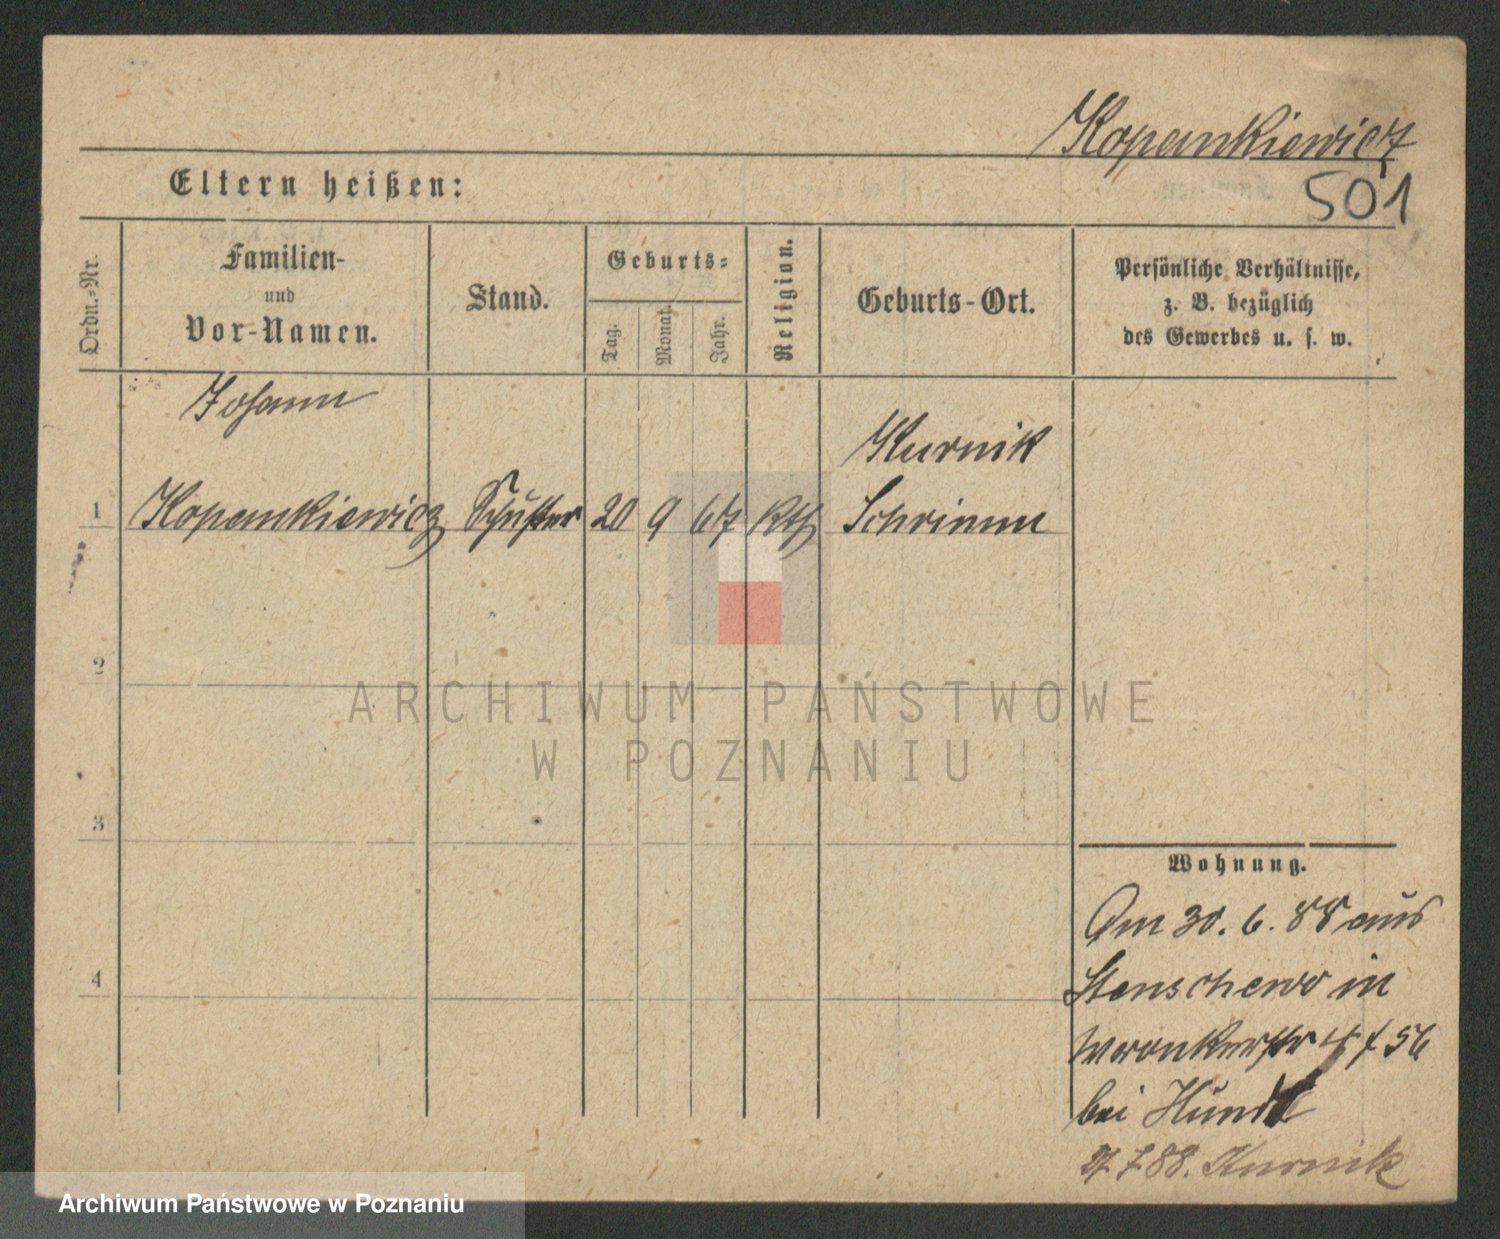 Kopankiewicz
501
Eltern heißen:
Ordn.-Nr.
Familien-
und
Vor-Namen.
Stand.
Geburts-
Tag.
Monat.
Jahr.
Religion.
Geburts-Ort.
Persönliche Verhältnisse,
z. B. bezüglich
des Gewerbes u. s. w.
Johann
Kurnik
1 Kopankiewicz Schuster 20 9 67 Kth Schrimm
2
ARCHIWUM PAŃSTWOWE
W POZNANIU
3
4
Wohnung.
Am 30. 6. 88 aus
Stenschewo in
Wronkerstr 4 56
bei Hundt
7 88. Kurnik
Archiwum Państwowe w Poznaniu